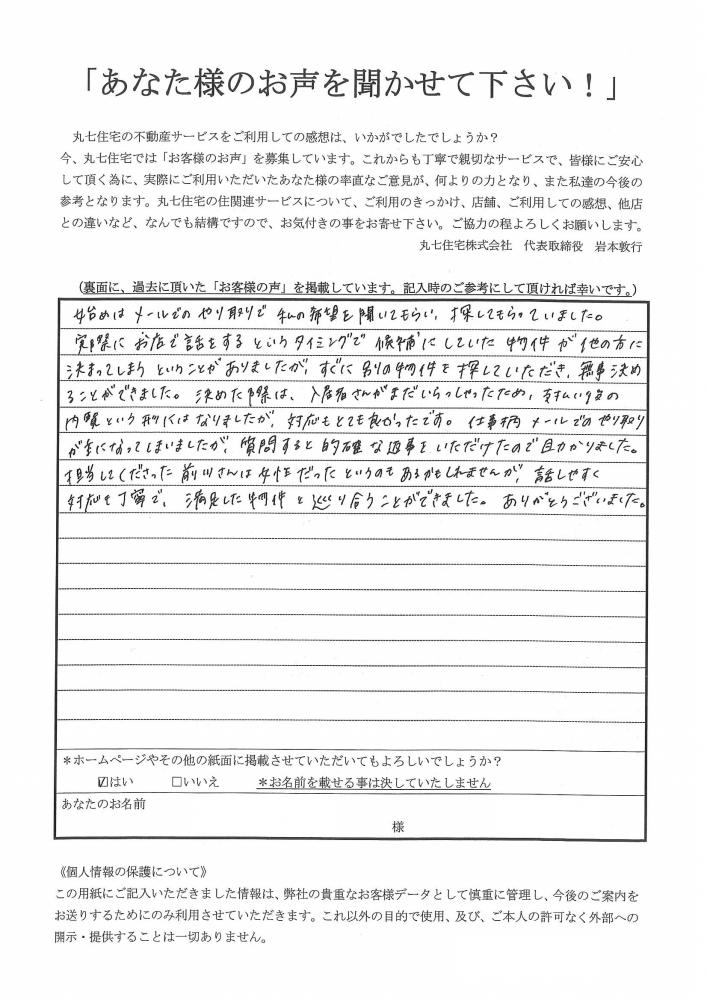 「あなた様のお声を聞かせて下さい！」
丸七住宅の不動産サービスをご利用しての感想は、いかがでしたでしょうか？
今、丸七住宅では「お客様のお声」を募集しています。これからも丁寧で親切なサービスで、皆様にご安心
して頂く為に、実際にご利用いただいたあなた様の率直なご意見が、何よりの力となり、また私達の今後の
参考となります。丸七住宅の住関連サービスについて、ご利用のきっかけ、店舗、ご利用しての感想、他店
との違いなど、なんでも結構ですので、お気付きの事をお寄せ下さい。ご協力の程よろしくお願いします。
丸七住宅株式会社　代表取締役　岩本敦行
（裏面に、過去に頂いた「お客様の声」を掲載しています。記入時のご参考にして頂ければ幸いです。）
始めはメールでのやり取りで私の希望を聞いてもらい、探してもらっていました。
実際にお店で話をするというタイミングで候補にしていた物件が他の方に
決まってしまうということがありましたが、すぐに別の物件を探していただき、無事決め
ることができました。決めた際は、入居者さんがまだいらっしゃったため、支払い後の
内覧という形にはなりましたが、対応もとても良かったです。仕事柄メールでのやり取り
が主になってしまいましたが、質問すると的確な返事をいただけたので助かりました。
担当してくださった前川さんは女性だったというのもあるかもしれませんが、話しやすく
対応も丁寧で、満足した物件と巡り合うことができました。ありがとうございました。
＊ホームページやその他の紙面に掲載させていただいてもよろしいでしょうか？
☑はい　□いいえ　＊お名前を載せる事は決していたしません
あなたのお名前
様
《個人情報の保護について》
この用紙にご記入いただきました情報は、弊社の貴重なお客様データとして慎重に管理し、今後のご案内を
お送りするためにのみ利用させていただきます。これ以外の目的で使用、及び、ご本人の許可なく外部への
開示・提供することは一切ありません。